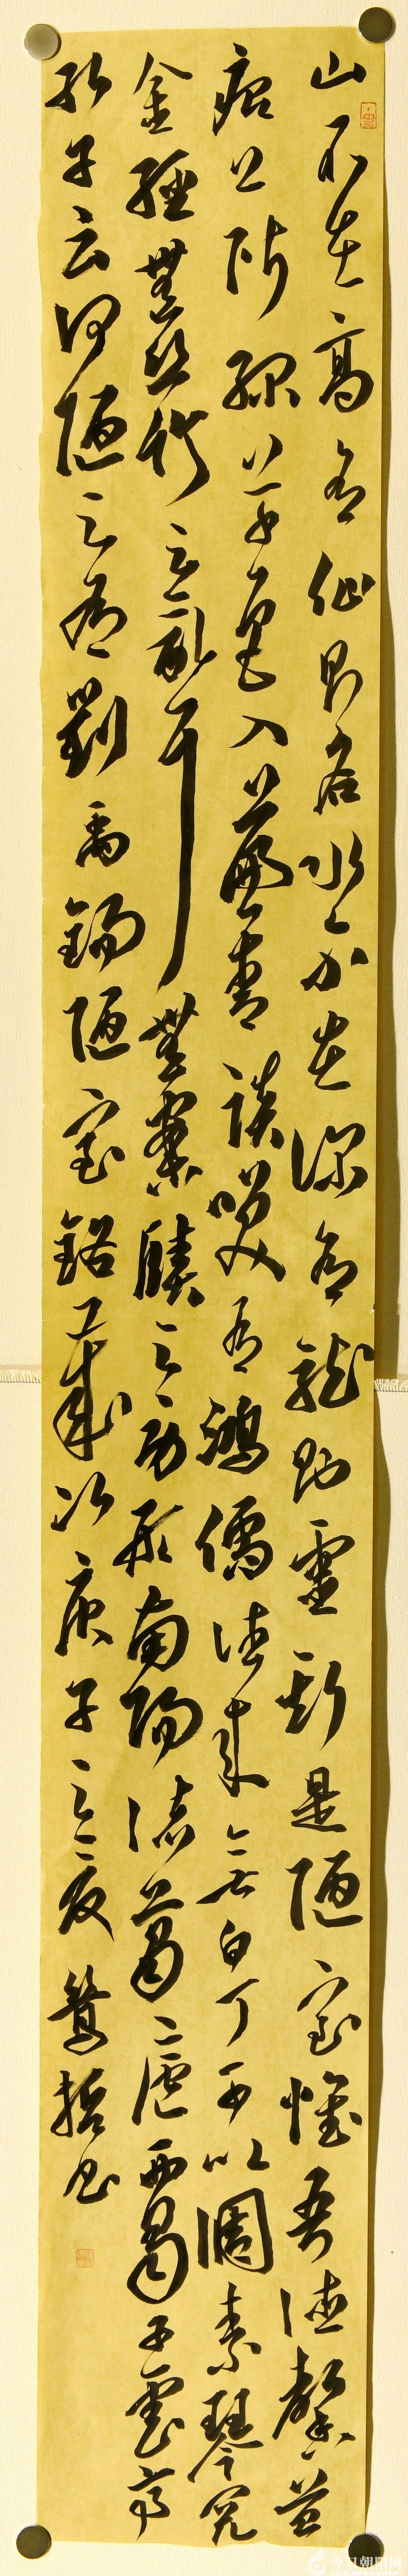 山不在高有仙則名水不在深有龍則靈斯是陋室惟吾德馨苔
痕上階綠草色入簾青談笑有鴻儒往來無白丁可以調素琴閱
金經無絲竹之亂耳無案牘之勞形南陽諸葛廬西蜀子雲亭
孔子云何陋之有劉禹錫陋室銘歲次庚子之夏哲书
今日朝阳网